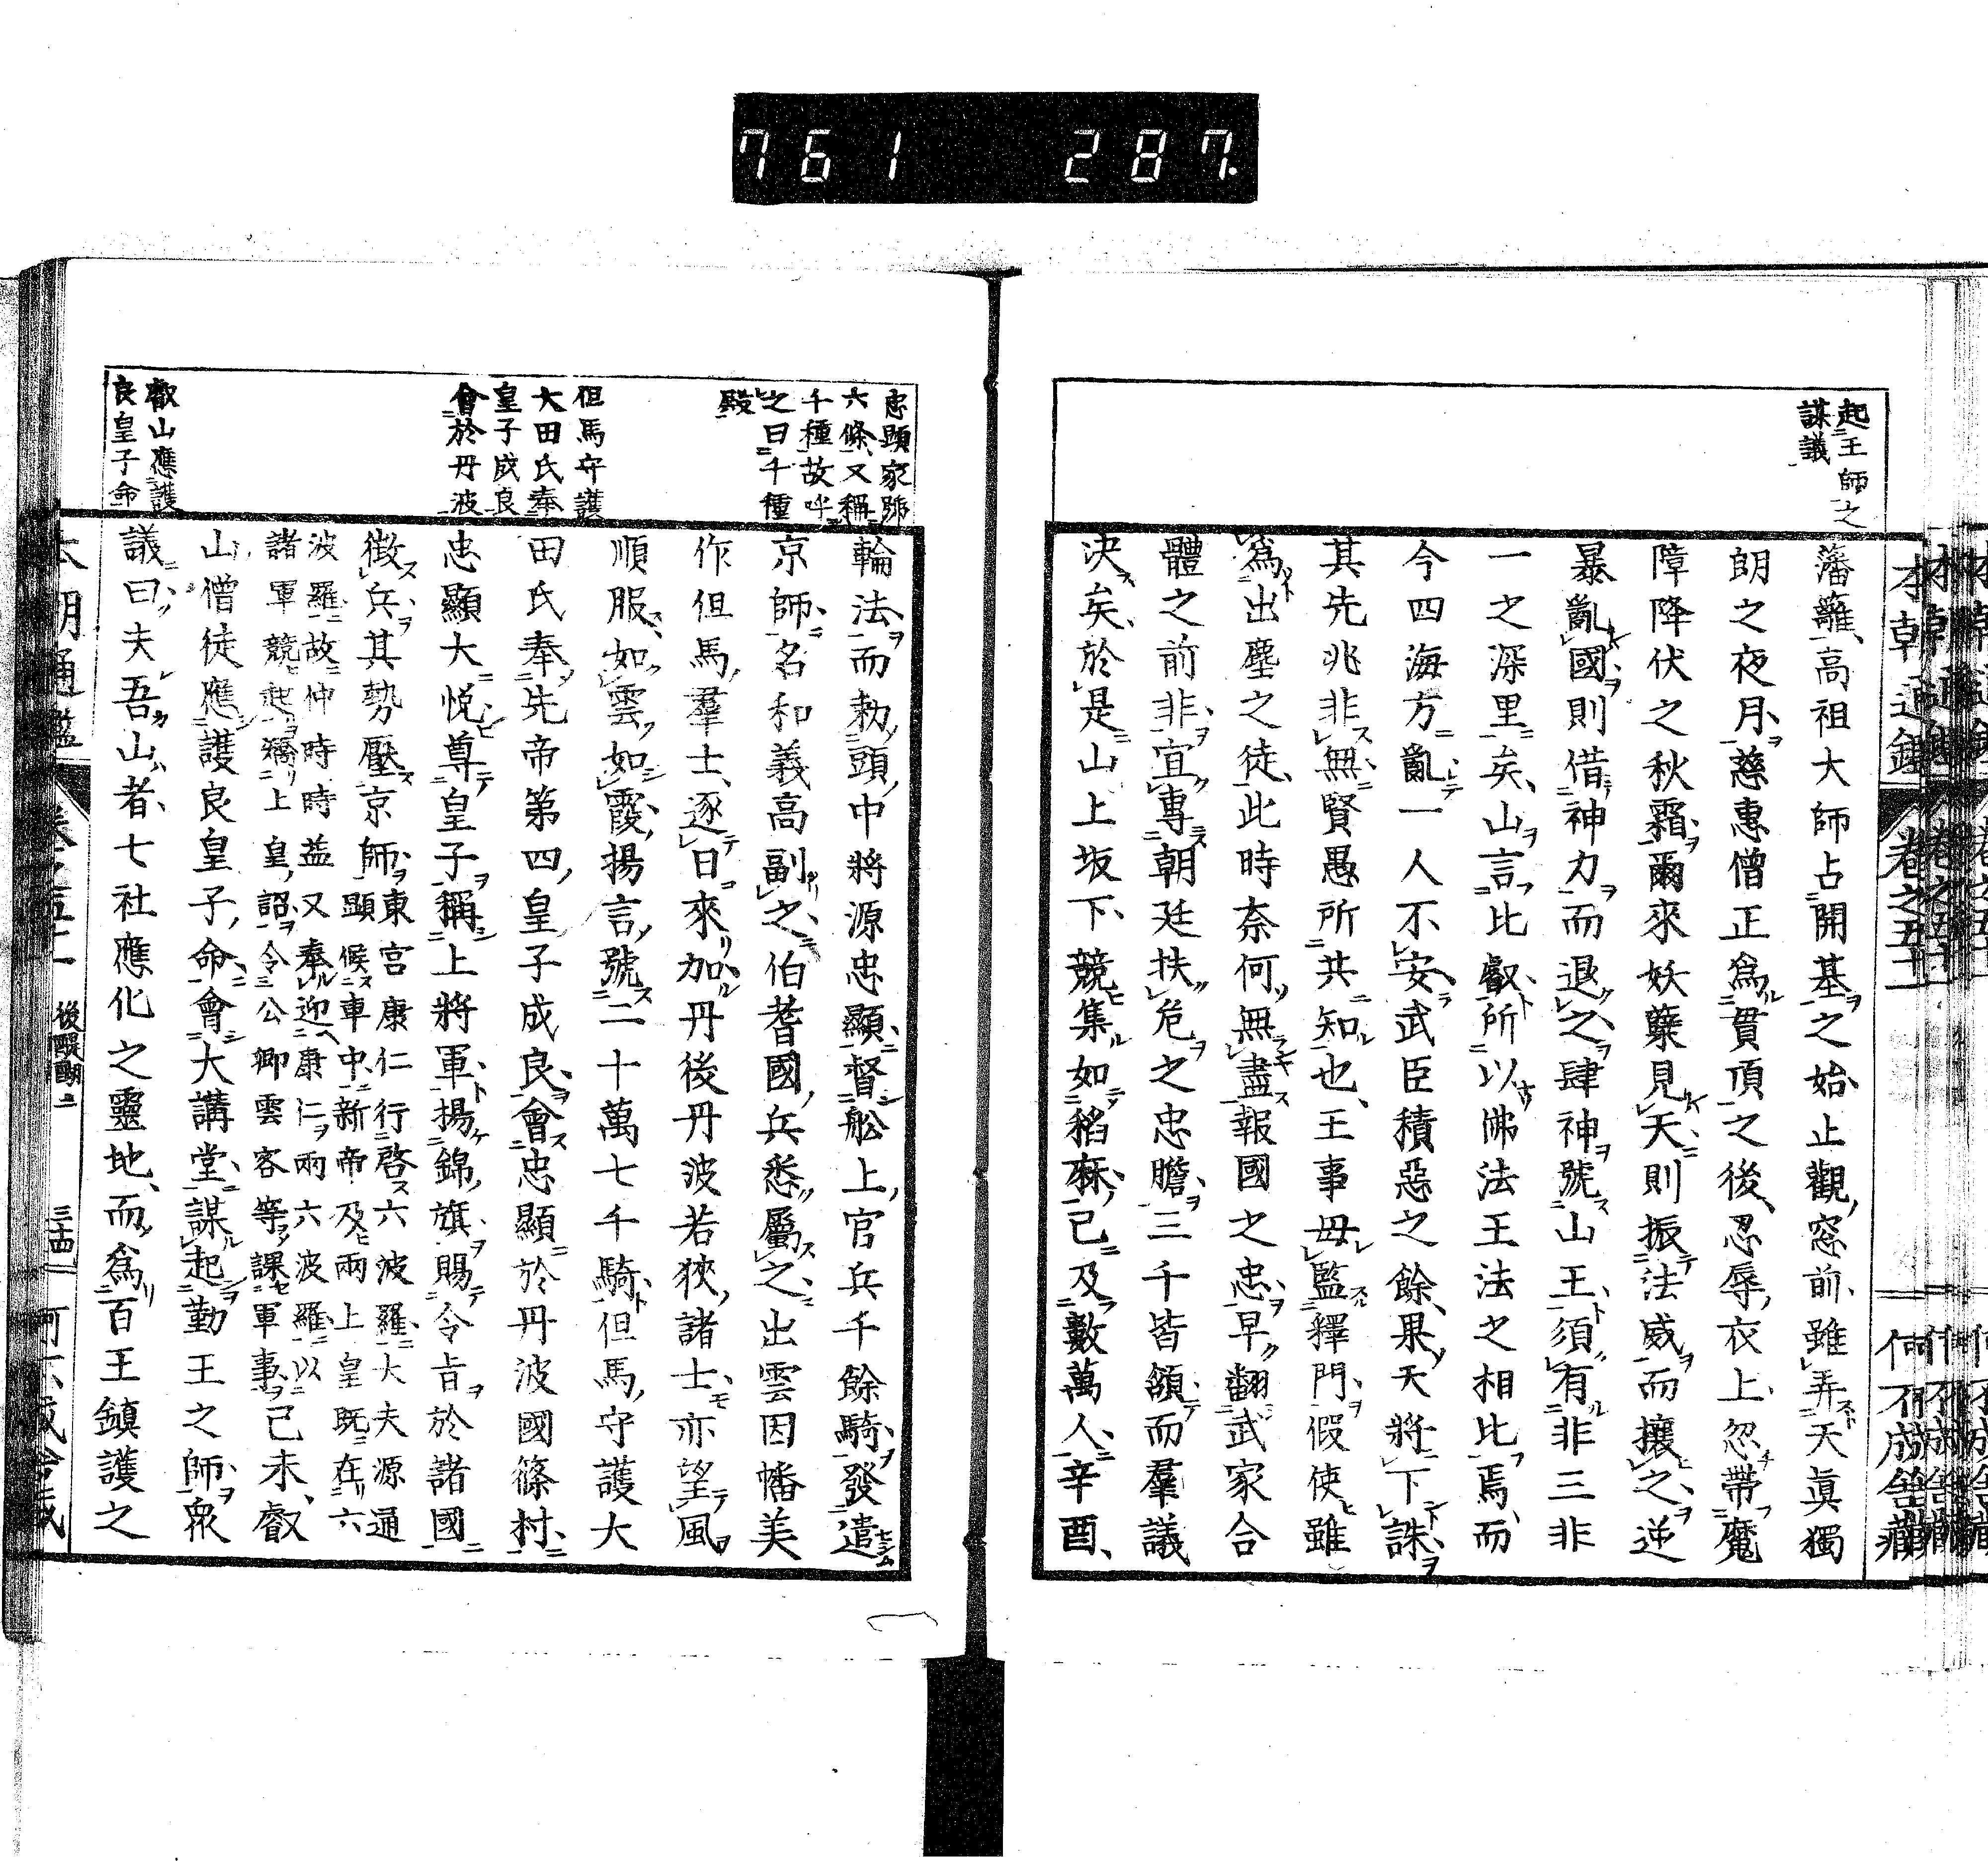 761 287
起王師之
謀議
本朝通鑑 卷之五十二 伺不成舎藏
藩籬、高祖大師占開基之始、止觀窓前、雖弄天眞獨
朗之夜月、慈惠僧正爲貫頂之後、忍辱衣上、忽帶魔
障降伏之秋霜、爾來妖蘖見天則振法威而攘之、逆
暴亂國則借神力而退之、肆神號山王、須有非三非
一之深里矣、山言比叡、所以佛法王法之相比焉、而
今四海方亂一人不安、武臣積惡之餘、果天將下誅、
其先兆非無賢愚所共知也、王事毋監釋門、假使雖
爲出塵之徒、此時奈何、無盡報國之忠、早翻武家合
體之前非、宜專朝廷扶危之忠膽、三千皆頷而羣議
決矣、於是山上坂下、競集如稻麻、已及數萬人、辛酉、
忠顯家號
六條、又稱
千種故呼
之曰千種
殿
但馬守護
大田氏奉
皇子成良
會於丹波
叡山應護
良皇子命
輪法而勅頭中將源忠顯、督舩上官兵千餘騎、發遣
京師、名和義高副之、伯耆國兵悉屬之、出雲因幡美
作但馬羣士、逐日來加、丹後丹波若狹諸士亦望風
順服、如雲如霞、揚言號二十萬七千騎、但馬守護大
田氏奉先帝第四皇子成良、會忠顯於丹波國篠村、
忠顯大悦、尊皇子稱上將軍、揚錦旗賜令旨於諸國
徴兵、其勢壓京師、東宮康仁行啓六波羅、大夫源通
顯候車中、新帝及兩上皇既在六
波羅、故仲時時益又奉迎康仁兩六波羅以
諸軍競起矯上皇詔令公卿雲客等課軍事、己未、叡
山僧徒應護良皇子命、會大講堂、謀起勤王之師、衆
議曰、夫吾山者、七社應化之靈地、而爲百王鎮護之
本朝通鑑 卷之五十二 後醍醐二 三十四